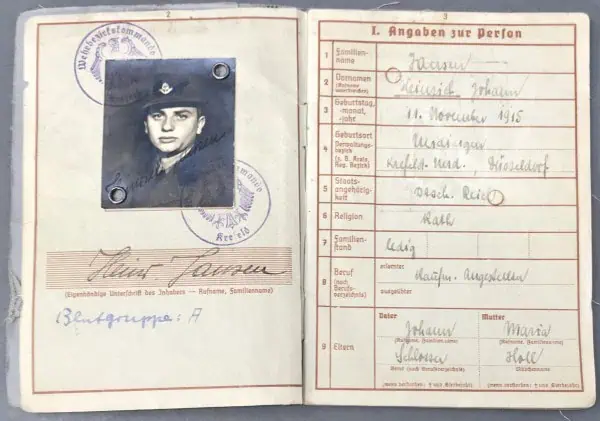 2
Wehrbezirkskommando
Krefeld
Heinr. Jansen
(Eigenhändige Unterschrift des Inhabers — Rufname, Familienname)
Blutgruppe: A
3
I. Angaben zur Person
1 Familien-
name
Jansen
2 Vornamen
(Rufname
unterstreichen)
Heinrich Johann
3 Geburtstag,
-monat,
-jahr
11. November 1915
4 Geburtsort
Verwaltungs-
bezirk
(z. B. Kreis,
Reg. Bezirk)
Düsseldorf
5 Staats-
angehörig-
keit
Reich
6 Religion
Kath
7 Familien-
stand
ledig
8 Beruf
(nach
Berufs-
verzeichnis)
erlernter
Kaufm. Angestellter
ausgeübter
9 Eltern
Vater
Mutter
Johann
Maria
(Rufname, Familienname)
(Rufname, Familienname)
Schlosser
Holl
Beruf (nach Berufsverzeichnis)
(Mädchenname)
(wenn verstorben: † und Sterbejahr)
(wenn verstorben: † und Sterbejahr)